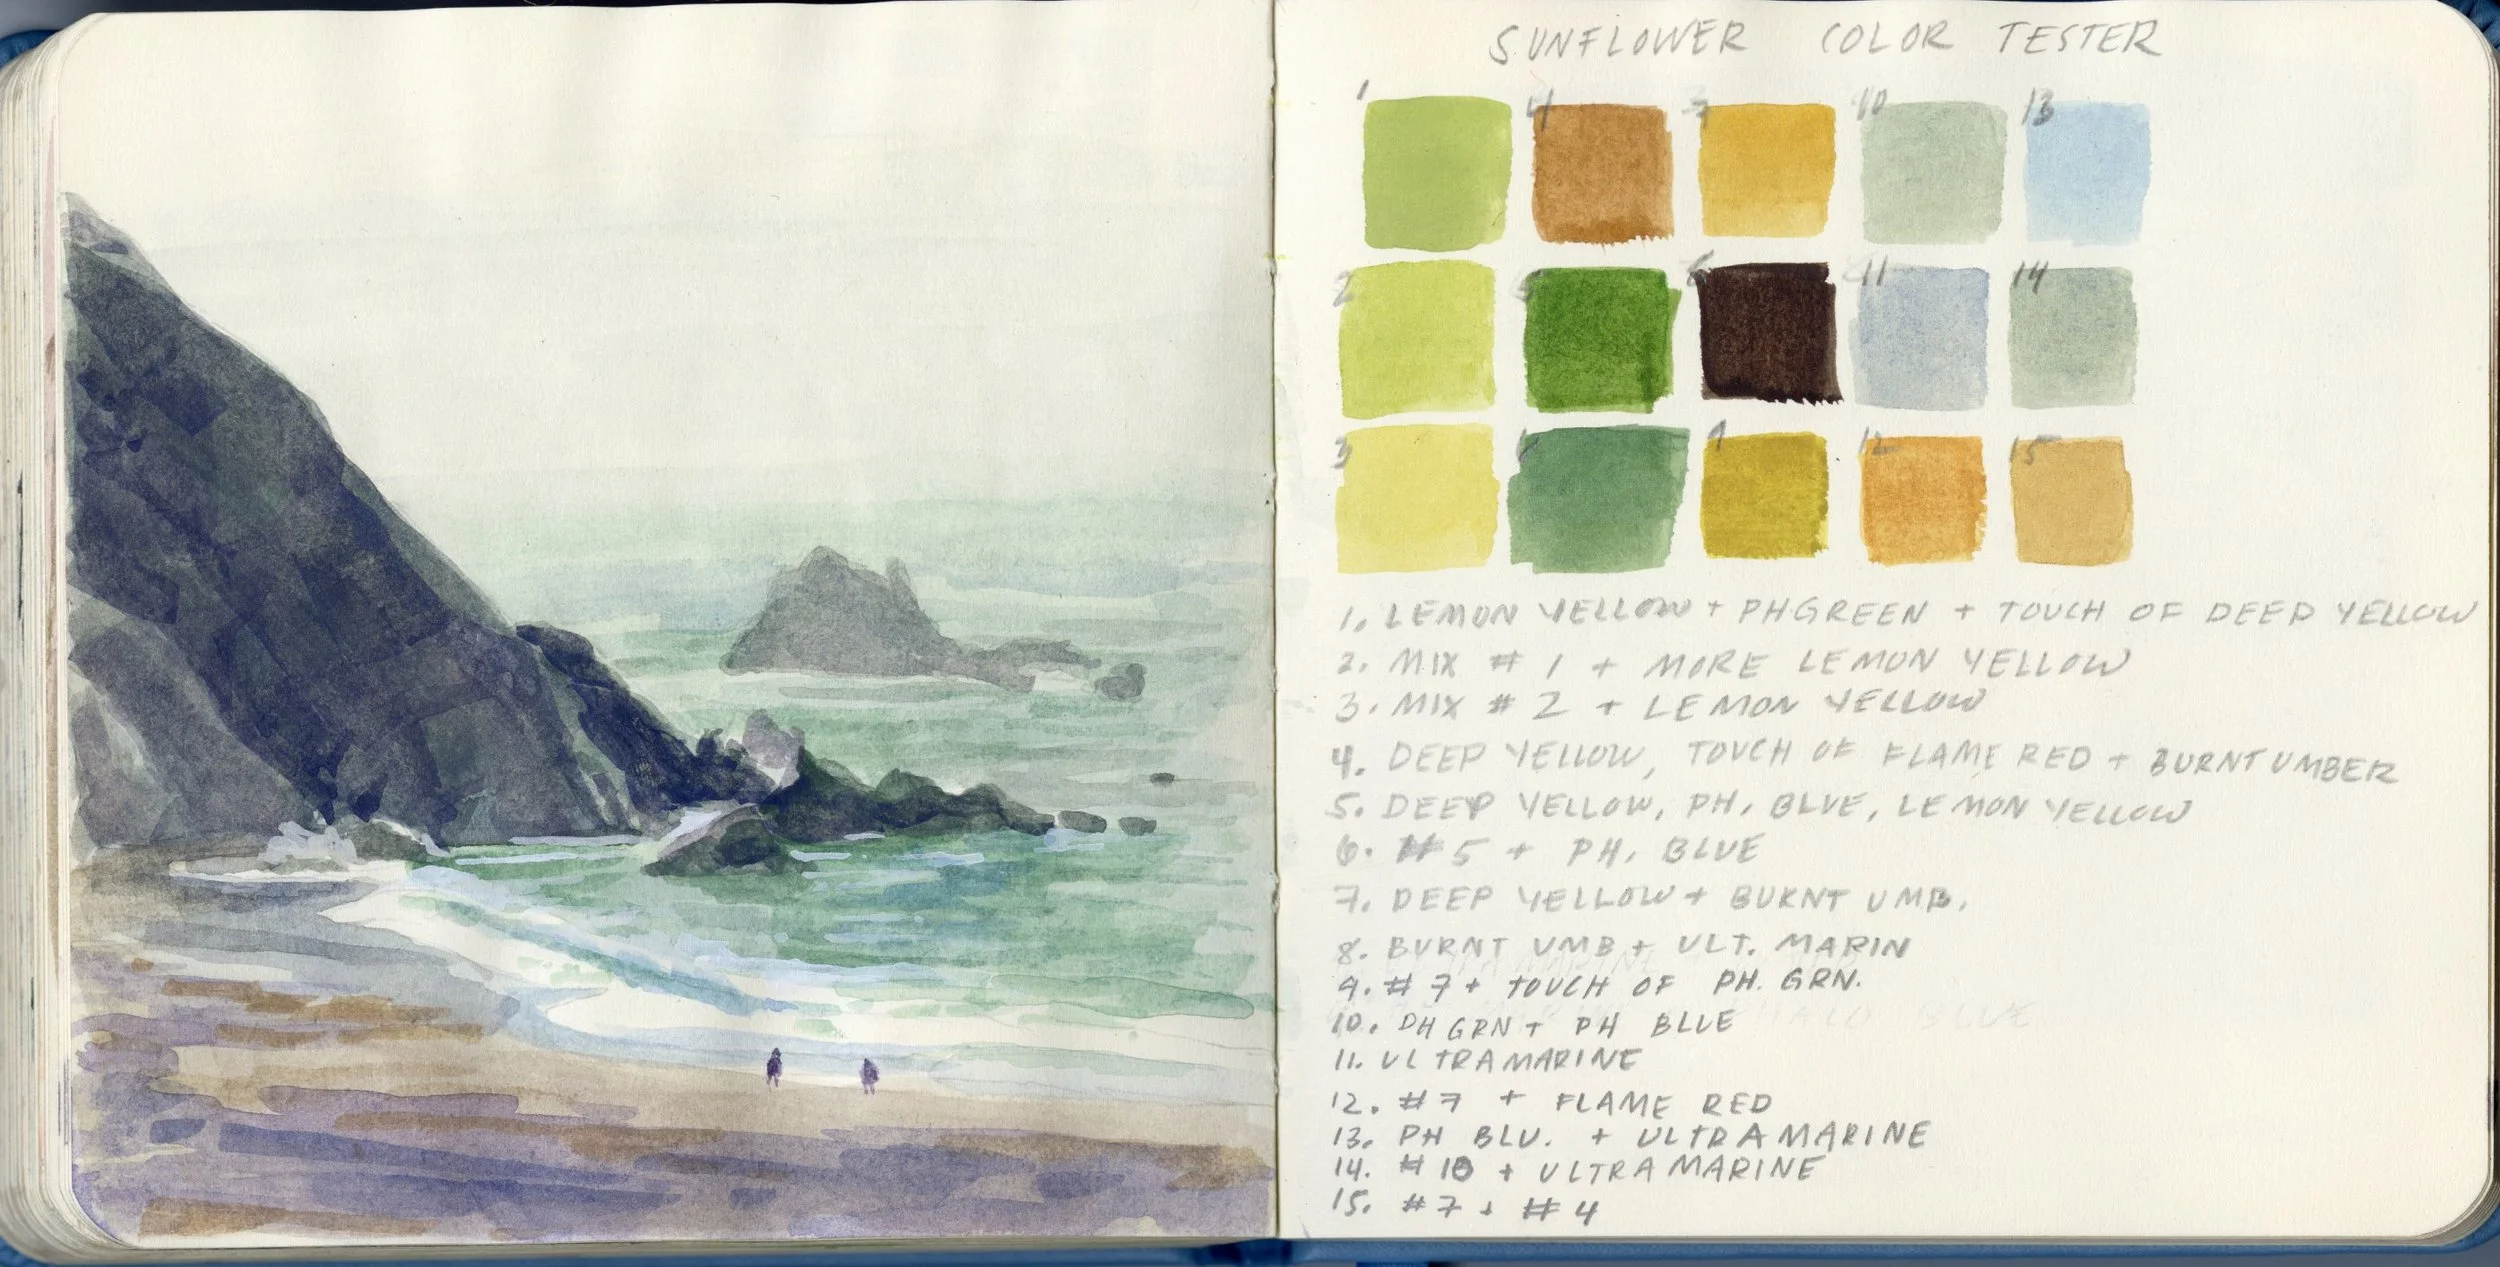 SUNFLOWER COLOR TESTER
1 4 7 10 13
2 5 8 11 14
3 6 9 12 15
1. LEMON YELLOW + PHGREEN + TOUCH OF DEEP YELLOW
2. MIX # 1 + MORE LEMON YELLOW
3. MIX # 2 + LEMON YELLOW
4. DEEP YELLOW, TOUCH OF FLAME RED + BURNT UMBER
5. DEEP YELLOW, PH. BLUE, LEMON YELLOW
6. #5 + PH. BLUE
7. DEEP YELLOW + BURNT UMB.
8. BURNT UMB + ULT. MARIN
9. # 7 + TOUCH OF PH. GRN.
10. PH GRN + PH BLUE
11. ULTRAMARINE
12. #7 + FLAME RED
13. PH BLU. + ULTRAMARINE
14. # 10 + ULTRAMARINE
15. #7 + #4